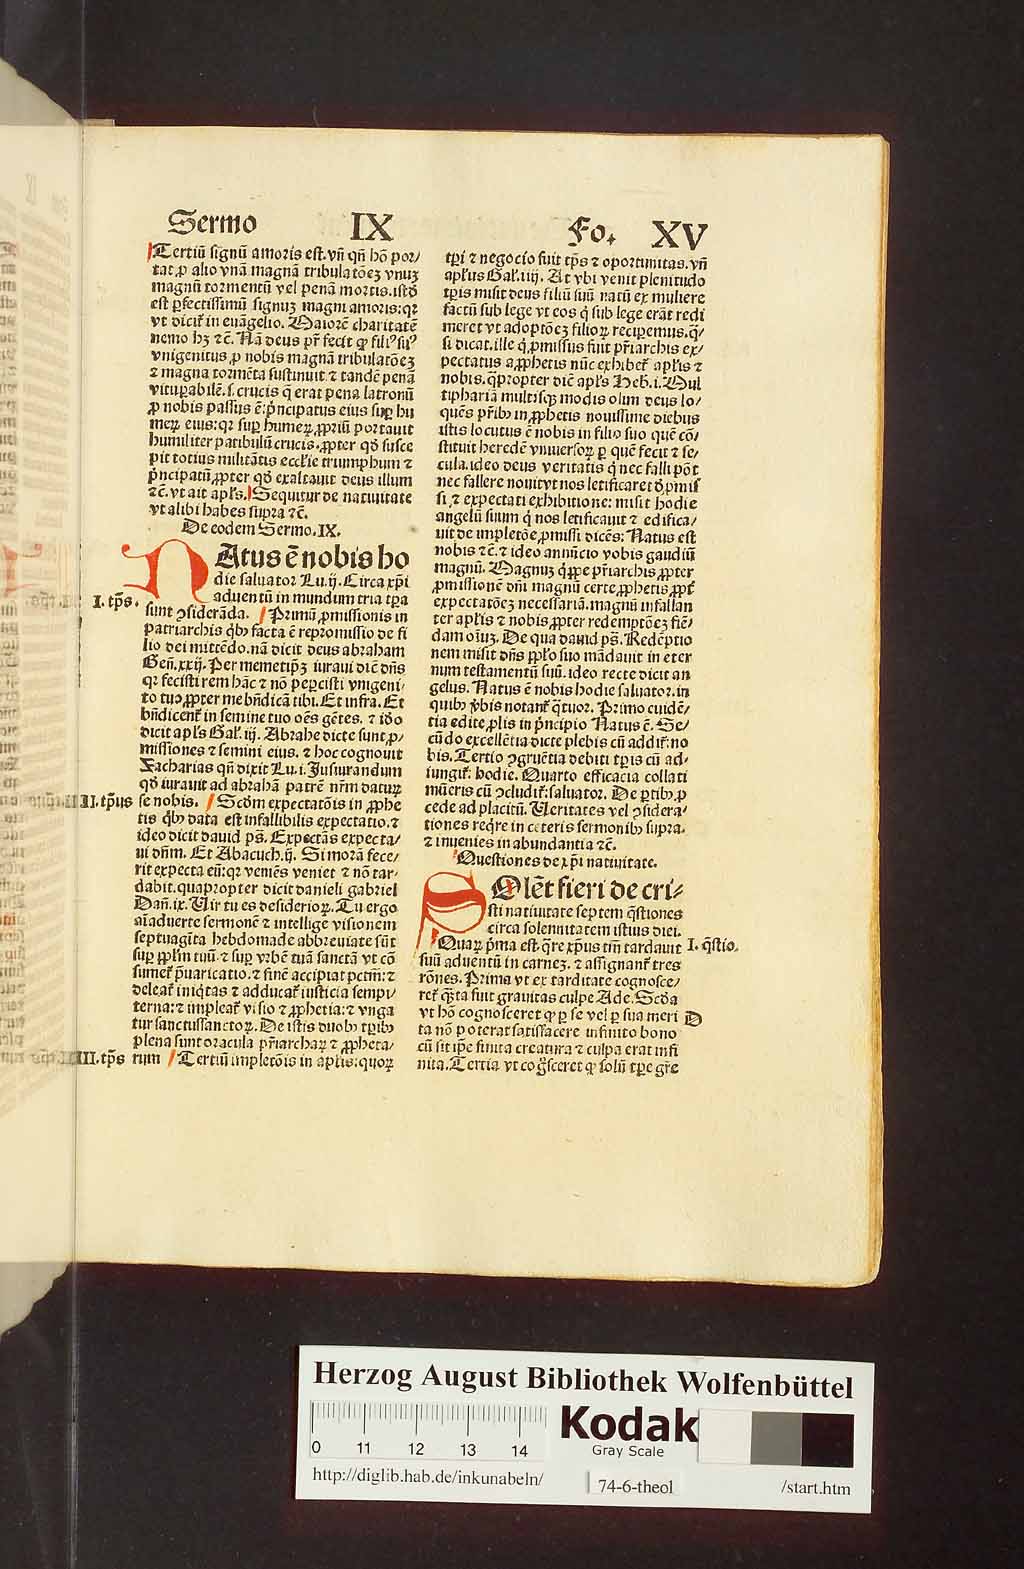 Sermo IX Fo. XV
Tertiū signū amoris est. vn̄ qn̄ hō por/
tat ꝓ alio vnā magnā tribulatōeꝫ vnuꝫ
magnū tormentū vel penā mortis. istō
est ꝑfectissimū signuꝫ magni amoris: qꝛ
vt dicit̄ in euāgelio. Maiorē charitatē
nemo hꝫ ⁊c̄. Nā deus pr̄ fecit ꝙ filiꝰ suꝰ
vnigenitus ꝓ nobis magnā tribulatōeꝫ
⁊ magna tormēta sustinuit ⁊ tandē penā
vituꝑabilē. s. crucis q̄ erat pena latronū
ꝓ nobis passus ē: p̄ncipatus eius suꝑ hu
meꝝ eius: qꝛ suꝑ humeꝝ ꝓpriū portauit
humiliter patibulū crucis. ꝓpter qḋ susce
pit totius militātis eccl̄ie triumphum ⁊
p̄ncipatū ꝓpter qḋ exaltauit deus illum
⁊c̄. vt ait apl̄s. Sequitur de natiuitate
vt alibi habes supra ⁊c̄.
De eodem Sermo. IX.
NAtus ē nobis ho
die saluator Lu. ij. Circa xp̄i
aduentū in mundum tria tꝑa
I. tp̄s.
sunt ꝯsiderāda. Primū ꝓmissionis in
patriarchis qb̄ꝫ facta ē repromissio de fi
lio dei mittēdo. nā dicit deus abraham
Gen̄. xxij. Per memetip̄ꝫ iuraui dic̄ dn̄s
qꝛ fecisti rem hāc ⁊ nō peꝑcisti vnigeni/
to tuo ꝓpter me bn̄dicā tibi. Et infra. Et
bn̄dicent̄ in semine tuo oēs gētes. ⁊ iḋo
dicit apl̄s Gal̄. iij. Abrahe dicte sunt ꝓ/
missiones ⁊ semini eius. ⁊ hoc cognouit
Zacharias qn̄ dixit Lu. i. Jusiurandum
qḋ iurauit ad abrahā patrē nr̄m datuꝝ
IIII. tp̄us
se nobis. Scḋm expectatōis in ꝓphe
tis qb̄ꝫ data est infallibilis expectatio. ⁊
ideo dicit dauid ps̄. Expectās expecta/
ui dn̄m. Et Abacuch. ij. Si morā fece/
rit expecta eū: qꝛ veniēs veniet ⁊ nō tar-
dabit. quapropter dicit danieli gabriel
Dan̄. ix. Uir tu es desiderioꝝ. Tu ergo
aīaduerte sermonē ⁊ intellige visionem
septuagīta hebdomade abbreuiate sūt
suꝑ ppl̄m tuū. ⁊ suꝑ vrbē tuā sanctā vt cō
sumet̄ p̄uaricatio. ⁊ finē accipiat pctm̄: ⁊
deleat̄ iniq̇tas ⁊ adducat̄ iusticia sempi/
terna: ⁊ impleat̄ visio ⁊ ꝓphetia: ⁊ vnga
tur sanctussanctoꝝ. De istis duobꝫ tꝑibꝫ
plena sunt oracula pr̄iarchaꝝ ⁊ ꝓpheta/
IIII. tp̄s
rum Tertiū impletōis in apl̄is: quoꝝ
tꝑi ⁊ negocio fuit tp̄s ⁊ oportunitas. vn̄
apl̄us Gal̄. iiij. At vbi venit plenitudo
tꝑis misit deus filiū suū natū ex muliere
factū sub lege vt eos q̇ sub lege erāt redi
meret vt adoptōeꝫ filioꝝ reciꝑemus. q̄/
si dicat. ille q̇ ꝓmissus fuit pr̄iarchis ex/
pectatus a ꝓphetis nūc exhibet̄ apl̄is ⁊
nobis. qꝓpter dic̄ apl̄s Heb̄. i. Mul
tiphariā multisqꝫ modis olim deus lo/
quēs pr̄ibꝫ in ꝓphetis nouissime diebus
istis locutus ē nobis in filio suo quē cō/
stituit heredē vniuersoꝝ ꝑ quē fecit ⁊ se/
cula. ideo deus veritatis q̇ nec falli pōt
nec fallere nouit vt nos letificaret ḋ ꝓmis
si, ⁊ expectati exhibitione: misit hodie
angelū suum q̇ nos letificauit ⁊ edifica/
uit de impletōe ꝓmissi dicēs: Natus est
nobis ⁊c̄. ⁊ ideo annūcio vobis gaudiū
magnū. Magnuꝫ q̇ꝑpe pr̄iarchis ꝓpter
ꝓmissionē dn̄i magnū certe ꝓphetis ꝓpt̄
expectatōeꝫ necessariā. magnū infallan
ter apl̄is ⁊ nobis ꝓpter redemptōeꝫ fiē/
dam oīuꝫ. De qua dauid ps̄. Redēptio
nem misit dn̄s ppl̄o suo mādauit in eter
num testamentū suū. ideo recte dicit an
gelus. Natus ē nobis hodie saluator. in
quibꝫ v̄bis notant̄ q̄tuor. Primo euidē/
tia edite ꝓlis in p̄ncipio Natus ē. Se/
cūdo excellētia dicte plebis cū addit̄: no
bis. Tertio ꝯgruētia debiti tꝑis cū ad-
iungit̄: hodie. Quarto efficacia collati
mūeris cū ꝯcludit̄: saluator. De ꝑtibꝫ ꝓ
cede ad placitū. Ueritates vel ꝯsidera/
tiones reqr̄e in ceteris sermonibꝫ supra.
⁊ inuenies in abundantia ⁊c̄.
Questiones de xp̄i natiuitate.
SOlēt fieri de cri-
sti natiuitate septem q̄stiones
circa solennitatem istius diei.
Quaꝝ p̄ma est. qr̄e xp̄us tm̄ tardauit
I. q̄stio.
suū aduentū in carneꝫ. ⁊ assignant̄ tres
rōnes. Prima vt ex tarditate cognosce/
ret̄ q̄ta fuit grauitas culpe Ade. Scḋa
vt hō cognosceret ꝙ ꝑ se vel ꝑ sua meri
D
ta nō poterat satisfacere infinito bono
cū sit ip̄e finita creatura ⁊ culpa erat infi
nita. Tertia vt cog̊sceret ꝙ solū tꝑe gr̄e
Herzog August Bibliothek Wolfenbüttel
0 11 12 13 14
Kodak
Gray Scale
http://diglib.hab.de/inkunabeln/
74-6-theol
/start.htm